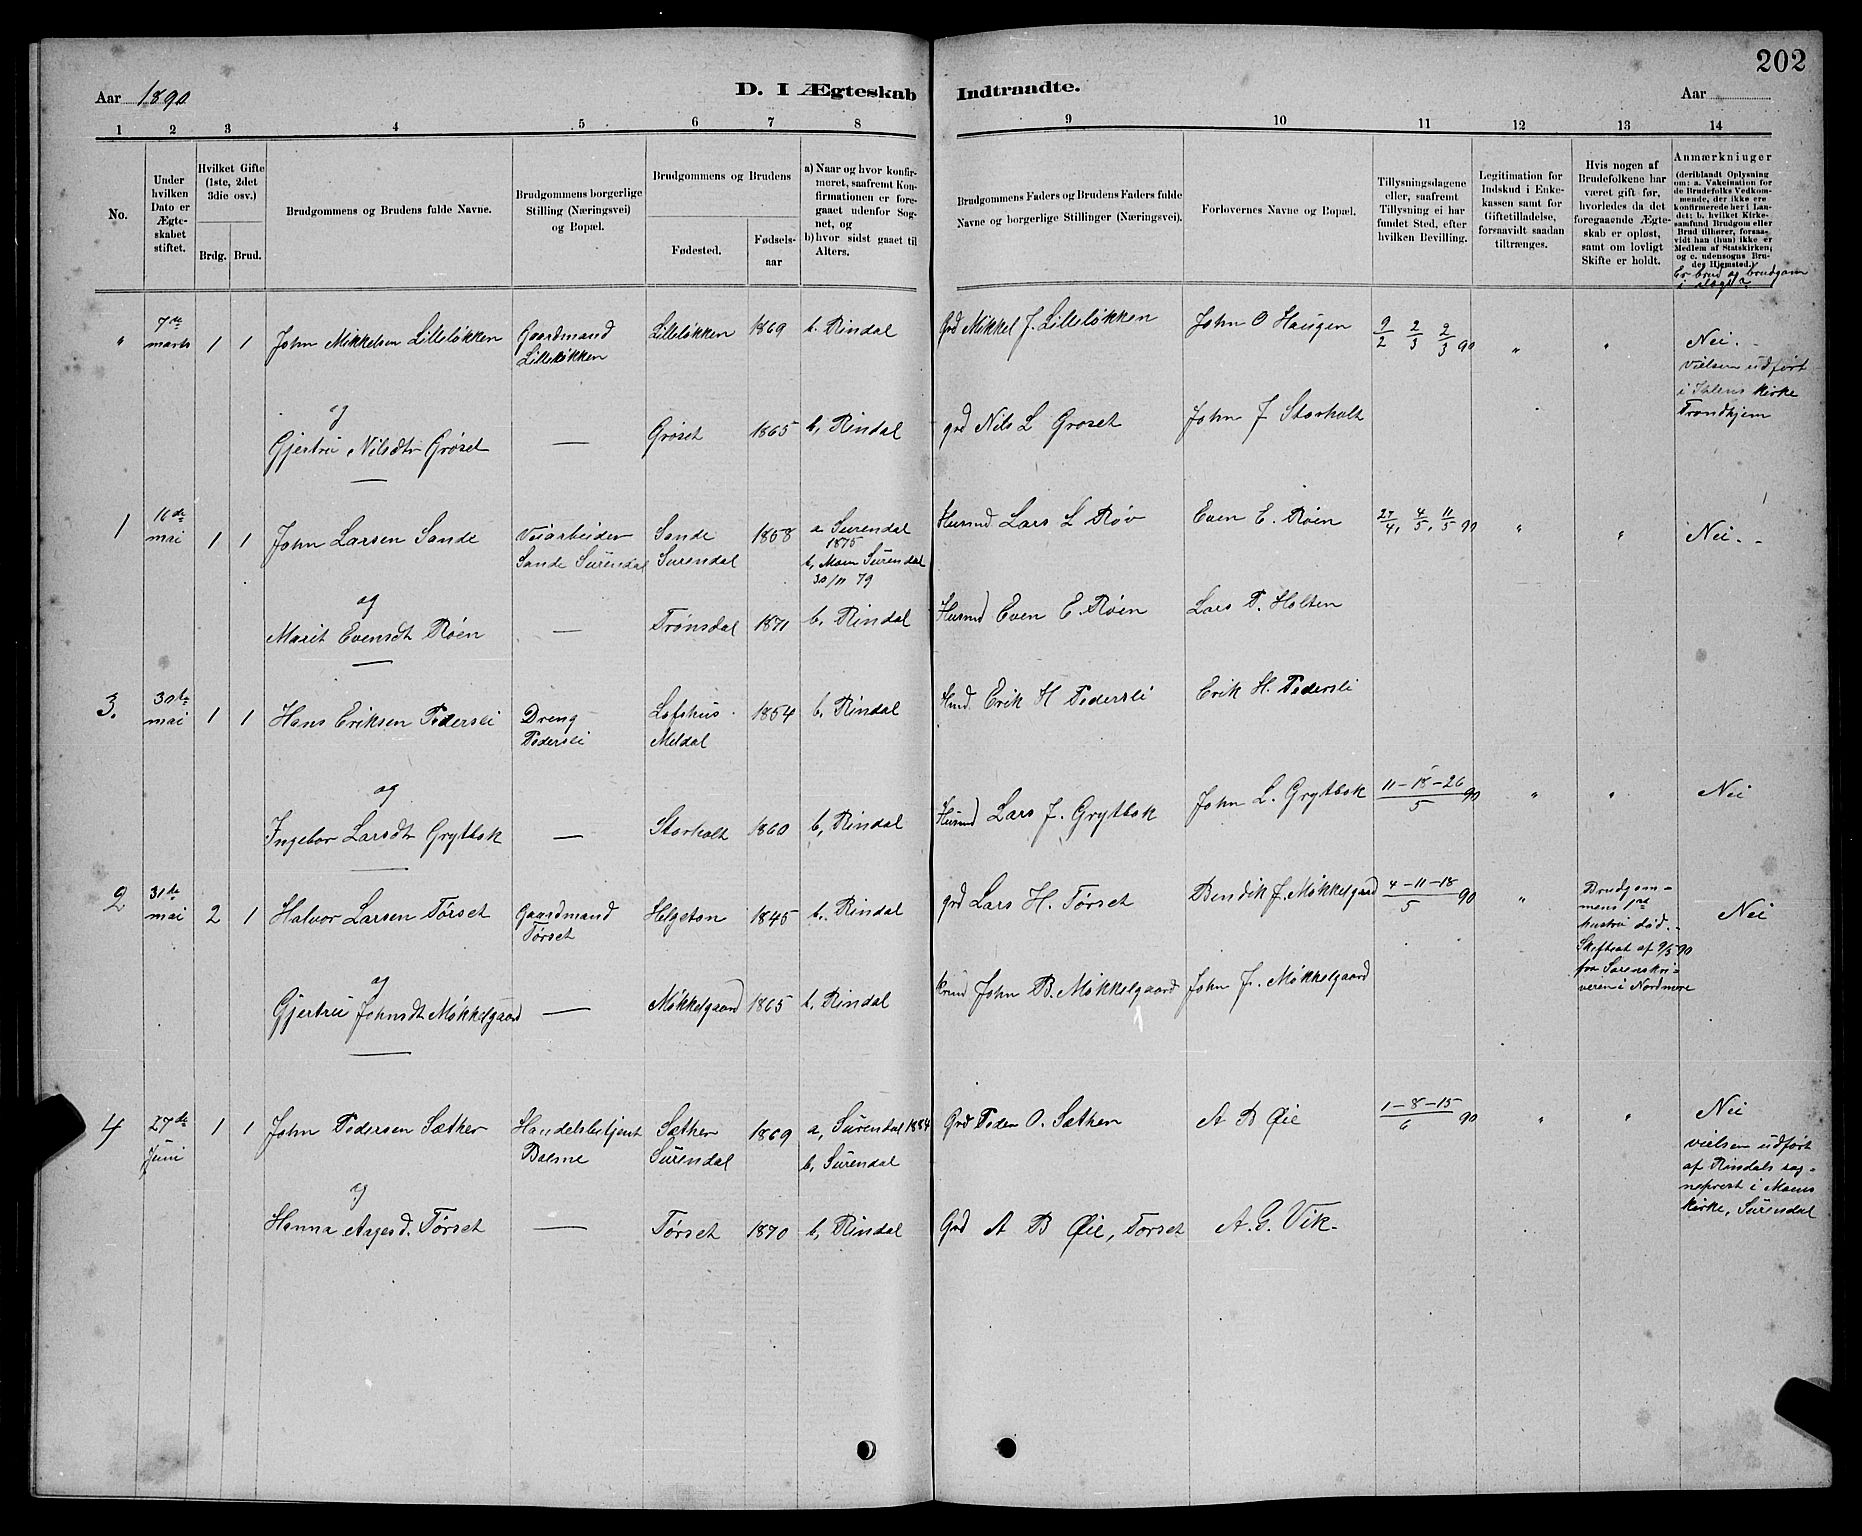 202
Aar 1890 D. I Ægteskab Indtraadte. Aar
1 2 3 4 5 6 7 8 9 10 11 12 13 14
No.
Under
hvilken
Dato er
Ægte-
skabet
stiftet.
Hvilket Gifte
(1ste, 2det
3die osv.)
Brdg. Brud.
Brudgommens og Brudens fulde Navne.
Brudgommens borgerlige
Stilling (Næringsvei)
og Bopæl.
Brudgommens og Brudens
Fødested.
Fødsels-
aar
a) Naar og hvor konfir-
meret, saafremt Kon-
firmationen er fore-
gaaet udenfor Sog-
net, og
b) hvor sidst gaaet til
Alters.
Brudgommens Faders og Brudens Faders fulde
Navne og borgerlige Stillinger (Næringsvei).
Forlovernes Navne og Bopæl.
Tillysningsdagene
eller, saafremt
Tillysning ei har
fundet Sted, efter
hvilken Bevilling.
Legitimation for
Indskud i Enke-
kassen samt for
Giftetilladelse,
forsaavidt saadan
tiltrænges.
Hvis nogen af
Brudefolkene har
været gift før,
hvorledes da det
foregaaende Ægte-
skab er opløst,
samt om lovligt
Skifte er holdt.
Anmærkninger
(deriblandt Oplysning
om: a. Vakcination for
de Brudefolks Vedkom-
mende, der ikke ere
konfirmerede her i Lan-
det; b. hvilket Kirke-
samfund Brudgom eller
Brud tilhører, forsaa-
vidt han (hun) ikke er
Medlem af Statskirken,
og c. udensogns Bru-
des Hjemsted.)
Er brud og brudgom
i slægt?
" 7de marts 1 1 John Mikkelsen Lilleløkken Gaardmand Lilleløkken Lilleløkken 1869 b. Rindal Grd Mikkel J. Lilleløkken John O Haugen 9/2 2/3 2/3 90 " " Nei. -
Vielsen udført
i Ihlens Kirke
Trondhjem
og
Gjertru Nilsdtr Grøset — Grøset 1865 b, Rindal grd Nils L Grøset John J Storholt
1 16de mai 1 1 John Larsen Sande Veiarbeider Sande Surendal Sande Surendal 1858 a Surendal 1875 b, Moen Surendal 30/11 79 Husmd Lars L Røv Even E. Røen 27/4, 4/5, 11/5 90 " " Nei. -
og
Marit Evensdt Røen — Trønsdal 1871 b, Rindal Husmd Even E. Røen Lars P. Holten
3. 30te mai 1 1 Hans Eriksen Pedersli Dreng Pedersli Lofshus Meldal 1854 b, Rindal Hmd. Erik H Pedersli Erik H. Pedersli
og
Ingebor Larsdtr Grytbak — Storholt 1860 b, Rindal Husmd Lars J. Grytbak John L. Grytbak 11-18-26/5 90 " " Nei
2 31de mai 2 1 Halvor Larsen Tørset Gaardmand Tørset Helgeton 1845 b. Rindal grd Lars H. Tørset Bendik J. Møkkelgaard 4-11-18/5 90 "
Brudgom-
mens 1re
hustru død. -
Skifteat af 9/5 90
fra Sorenskri-
veren i Nordmøre
Nei
og
Gjertru Johnsdt Møkkelgaard — Møkkelgaard 1865 b. Rindal John B. Møkkelgaard John J. Møkkelgaard
4 27de Juni 1 1 John Pedersen Sæther Handelsbetjent Bolme Sæther Surendal 1869 a, Surendal 1884 b, Surendal Grd Peder O. Sæther A B Øie 1-8-15/6 90 " " Nei
vielsen udført
af Rindals sog-
neprest i Moens
kirke, Surendal
og
Hanna Aagesd. Tørset — Tørset 1870 b, Rindal Grd A B Øie, Tørset A. G. Vik-